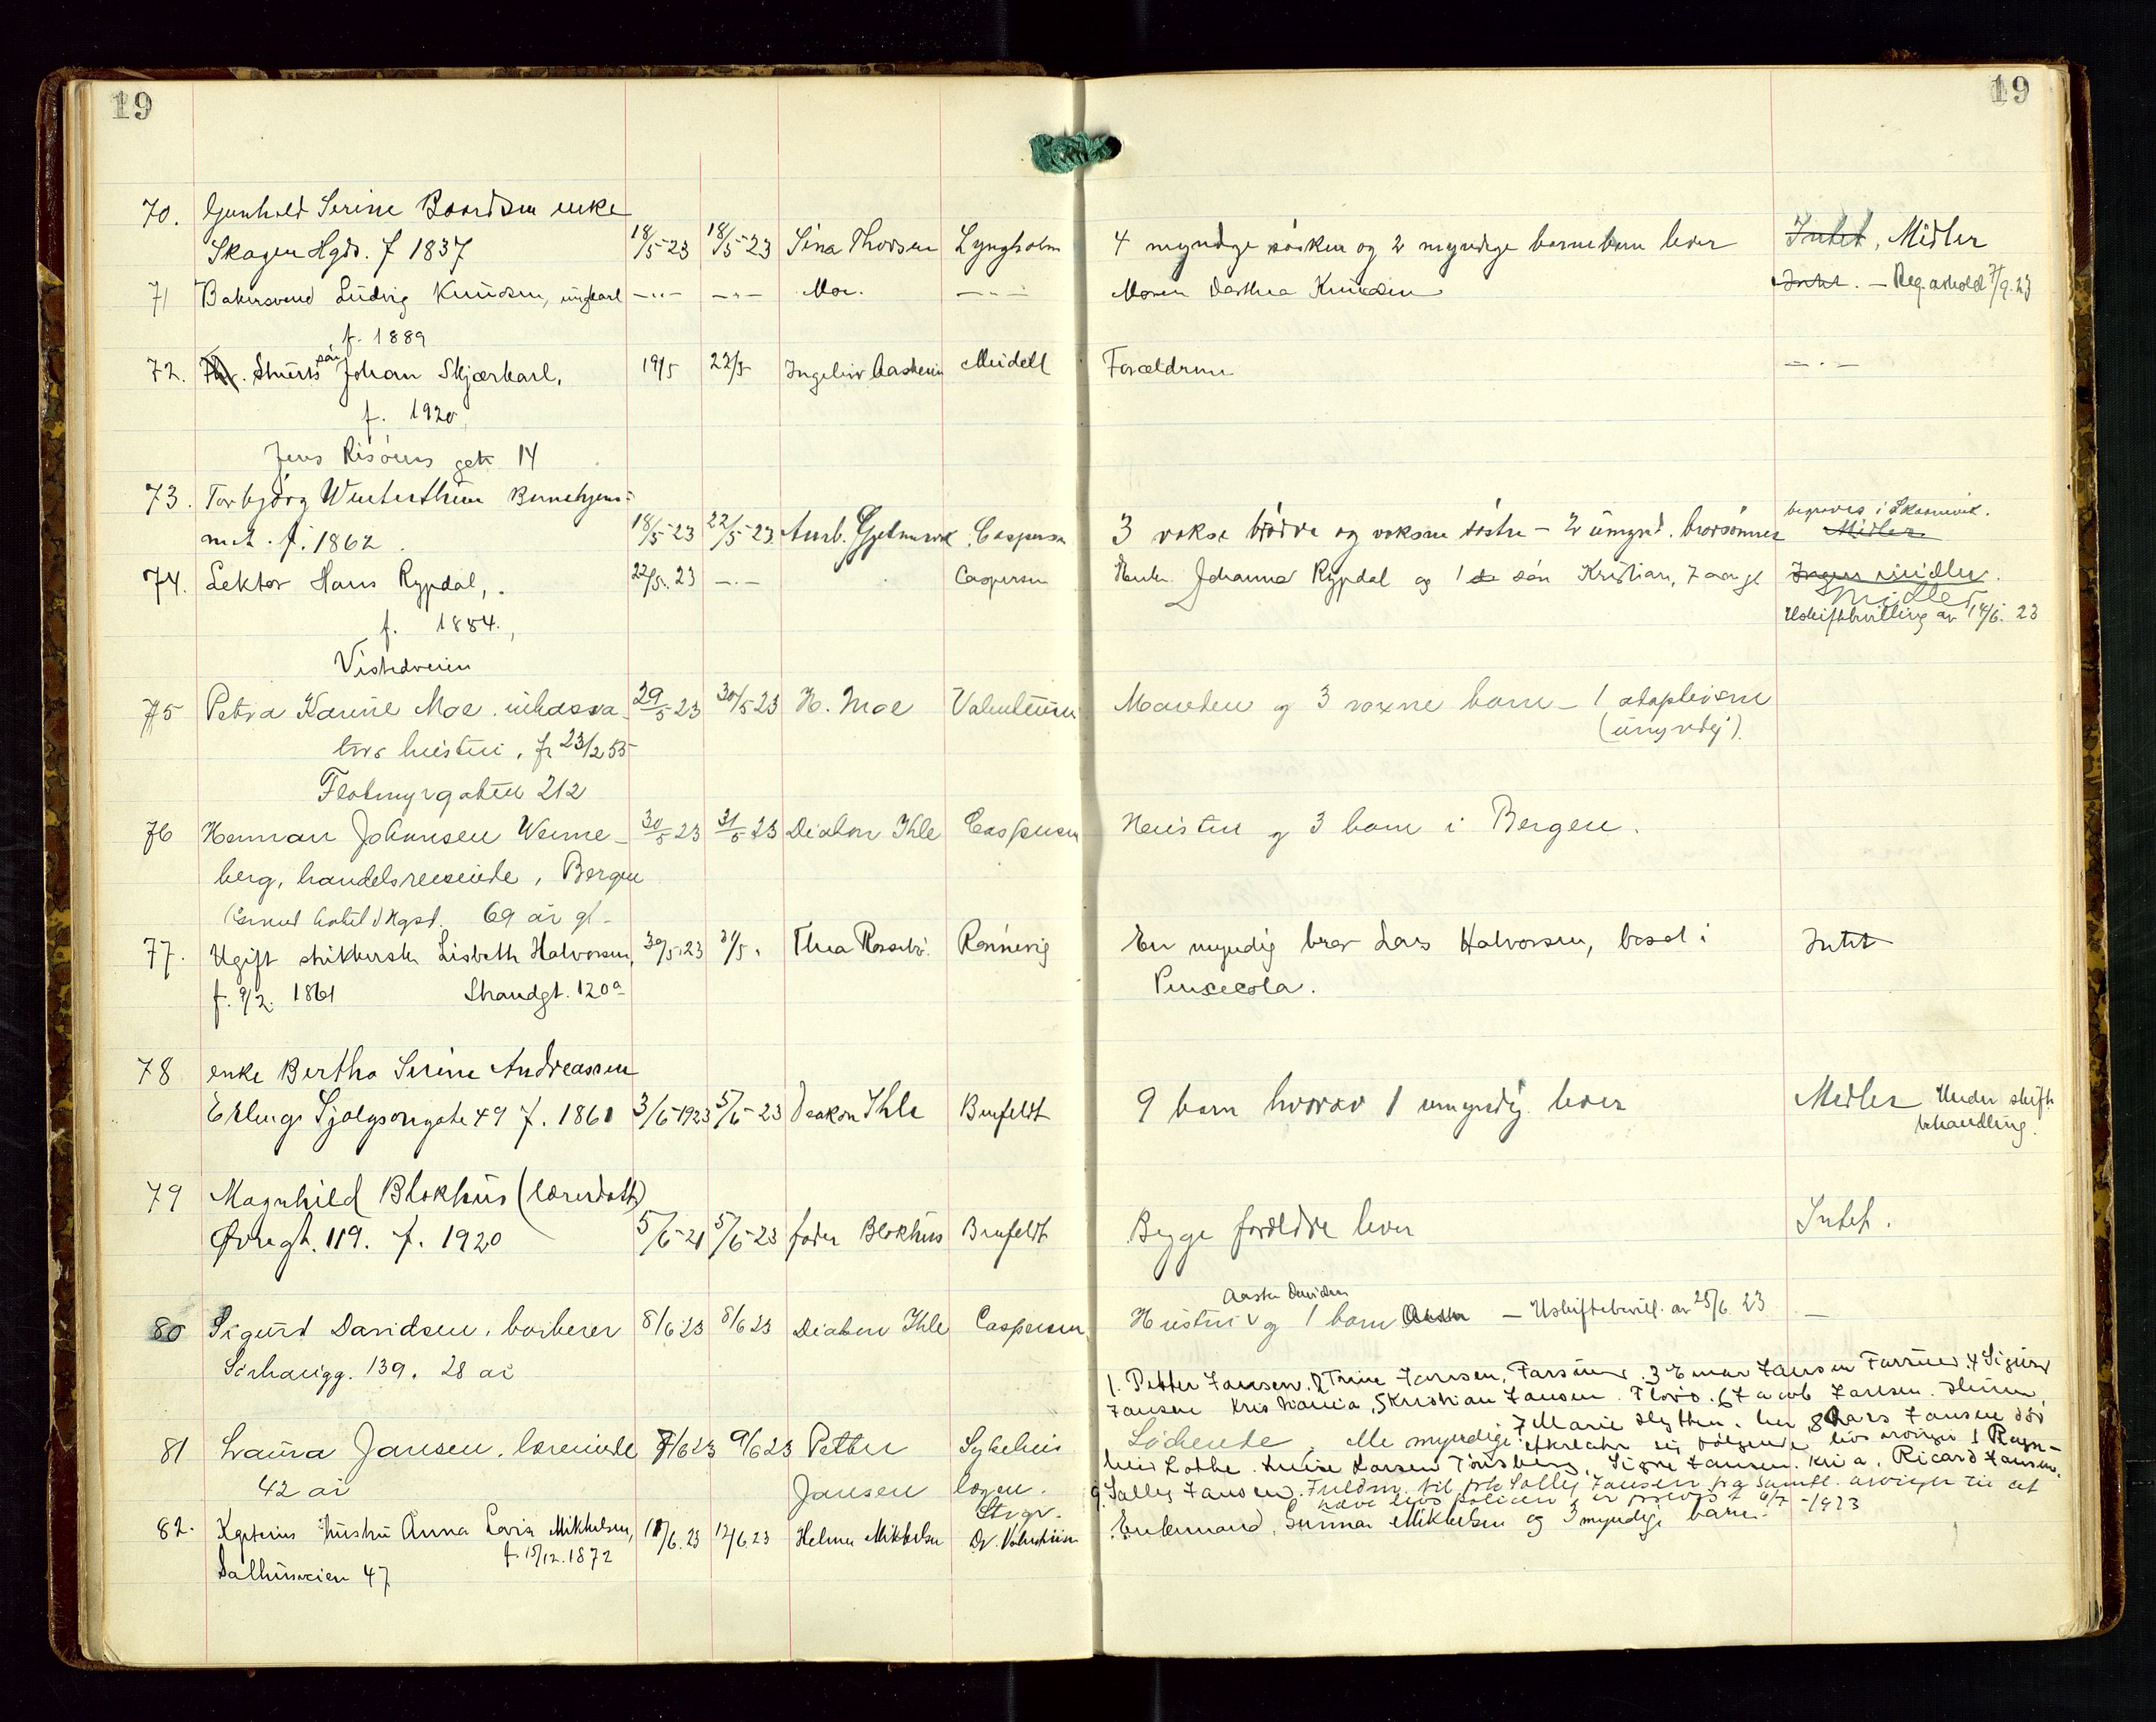 19
19
70. Gunhild Serine Baardsen enke
Skagen Hgds. f 1837 18/5-23 18/5-23 Sina Thorsen Lyngholm 4 myndige søsken og 2 myndige barnebarn lever Intet, Midler
71 Bakersvend Ludvig Knudsen, ungkarl —..— —..— Moe. —..— Moren Dorthea Knudsen Intet. — Reg. avhold 7/9.23
f. 1889
72. Stuerts søn Johan Skjærkarl, 19/5 22/5 Ingeleiv Meidell Forældrene —.—
f. 1920
Jens Risøens gek 14
73. Torbjørg Winterthun 
f. 1862. 18/5-23 22/5-23. Anb. Gjelmervik Caspersen 3 vokse brødre og voksne søstre — 2 umynd. brorsønner begraves i Skaanevik. Midler
74. Lektor Hans Rypdal, 22/5. 23 —.— Caspersen Enke. Johanna Rypdal og 1 søn Kristian, 7 aar gl Ingen midler.
f. 1884. Midler
Uskiftbevilling av 14/6. 23
Vistedveien
75 Petra Karine Moe. inkassa- 29/5-23 30/5 23 H. Moe Valentinsen Manden og 3 voxne barn — 1 adoptivsøn
tørs hustru, f. 23/2 55 (umyndig).
Flotmyrgaten 212
76 Herman Johnnsen Wenne- 30/5 23 31/5 23 Diakon Ihle Caspersen Hustru og 3 barn i Bergen.
berg, handelsreisende, Bergen
hotel Hgsd. 69 år gl-
77. Ugift strikkerske Lisbeth Halvorsen, 30/5.23 31/5. Thea Rossebø. Rønnevig En myndig bror Lars Halvorsen, bosat i Intet
f. 9/2. 1861 Strandgt. 120a Pensecola.
78 enke Bertha Serine Andreassen
Erlings Sjalgsongate 49 f. 1861 3/6-1923 5/6-23 Deakon Ihle Brufeldt 9 barn hvorav 1 umyndig lever Midler Under skifte
behandling.
79 Magnhild Blokhus (lærerdatt)
Øvregt. 119. f. 1920 5/6-21 5/6-23 fader Blokhus Brufeldt Begge foreldre lever Intet.
80 Sigurd Davidsen, barberer 8/6 23 8/6 23 Diakon Ihle Caspersen Hustru Aasta Davidsen og 1 barn — Uskiftebevill. av 25/6. 23 —
Sørhaugg. 139. 28 år
1. Petter Jansen. 2 Trine Jansen, Farsund. 3 Einar Jansen Farsund. 4 Sigurd
Jansen Kristiania, 5 Kristian Jansen. Florø. 6 Jacob Jansen.
81 Laura Jansen. lærerinde 7/6 23 9/6 23 Petter Sykehus Søskende, alle myndige. 7 Marie Hytten. her 8 Lars Jansen død
42 år Jansen lægen. efterlater sig følgende livs arvinger 1 Ragn-
hild Lothe. Larsen Tønsberg, Signe Jansen. Kria. Ricard Jansen.
9. Salley Jansen. Fuldm. til frk Salley Jansen fra samtl. arvinger til at
hæve livs policen er 6/7-1923
82. Kapteins hustru Anna Lovise Mikkelsen, 11/6. 23 12/6 23 Helmer Mikkelsen Strgr. Dr. Valentinsen Enkemand, Gunnar Mikkelsen og 3 myndige barn.
f. 15/12. 1872
Salhusveien 47